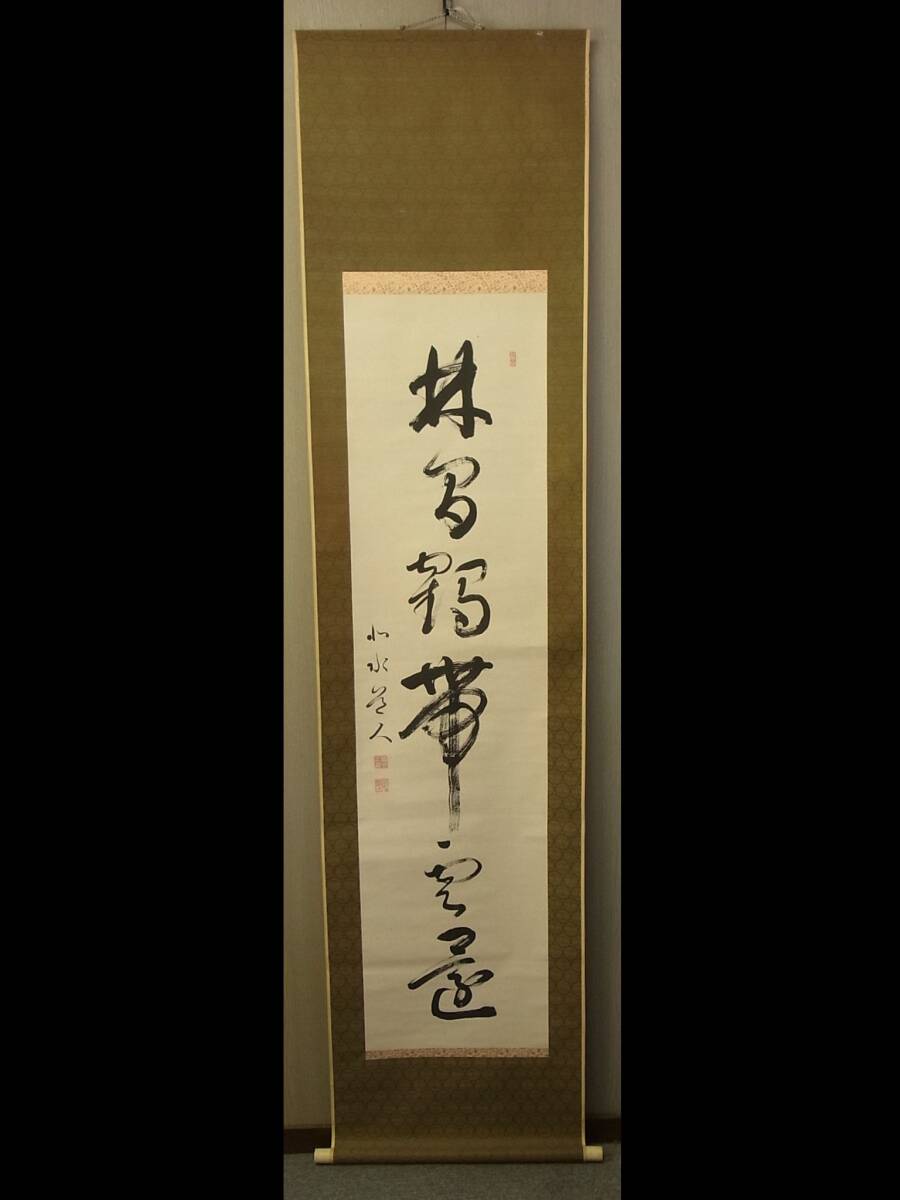 林間鶴帶雲還
水道人